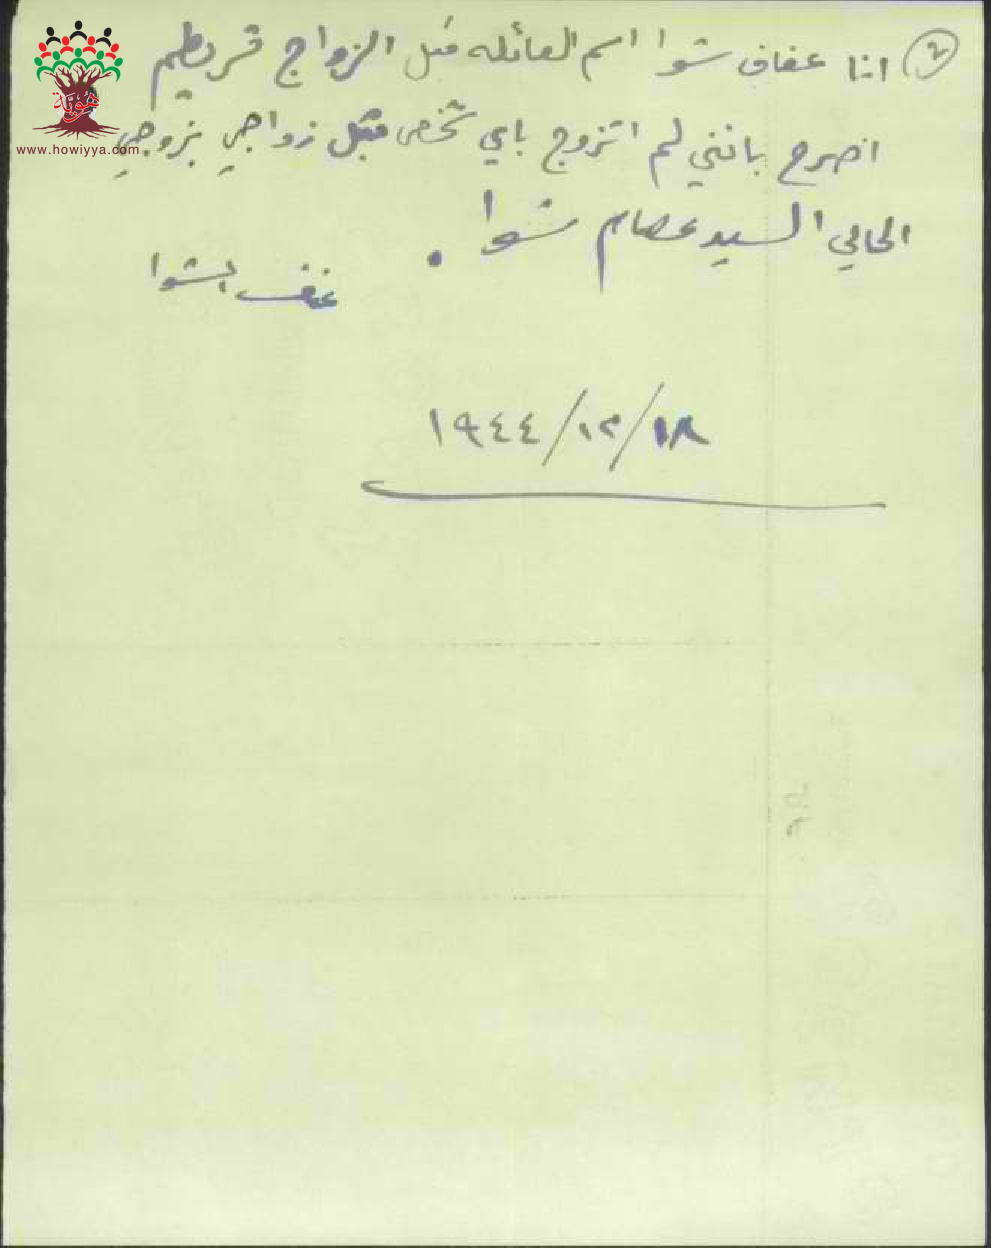 ٢ انا عفاف شوا اسم العائله قبل الزواج قريطم
اصرح بانني لم اتزوج باي شخص قبل زواجي بزوجي
الحالي السيد عصام شوا .
عفاف الشوا
١٨/١٢/١٩٤٤
هويّة
www.howiyya.com